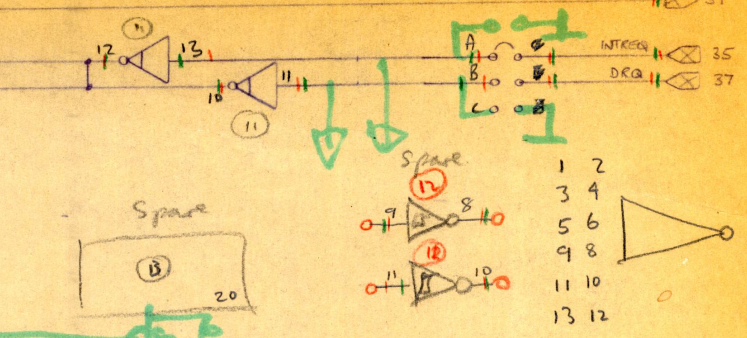 12
13
10
11
11
A
B
C
INTREQ 35
DRQ 37
Spare
12
9 8
11 10
Spare
13
20
1 2
3 4
5 6
9 8
11 10
13 12